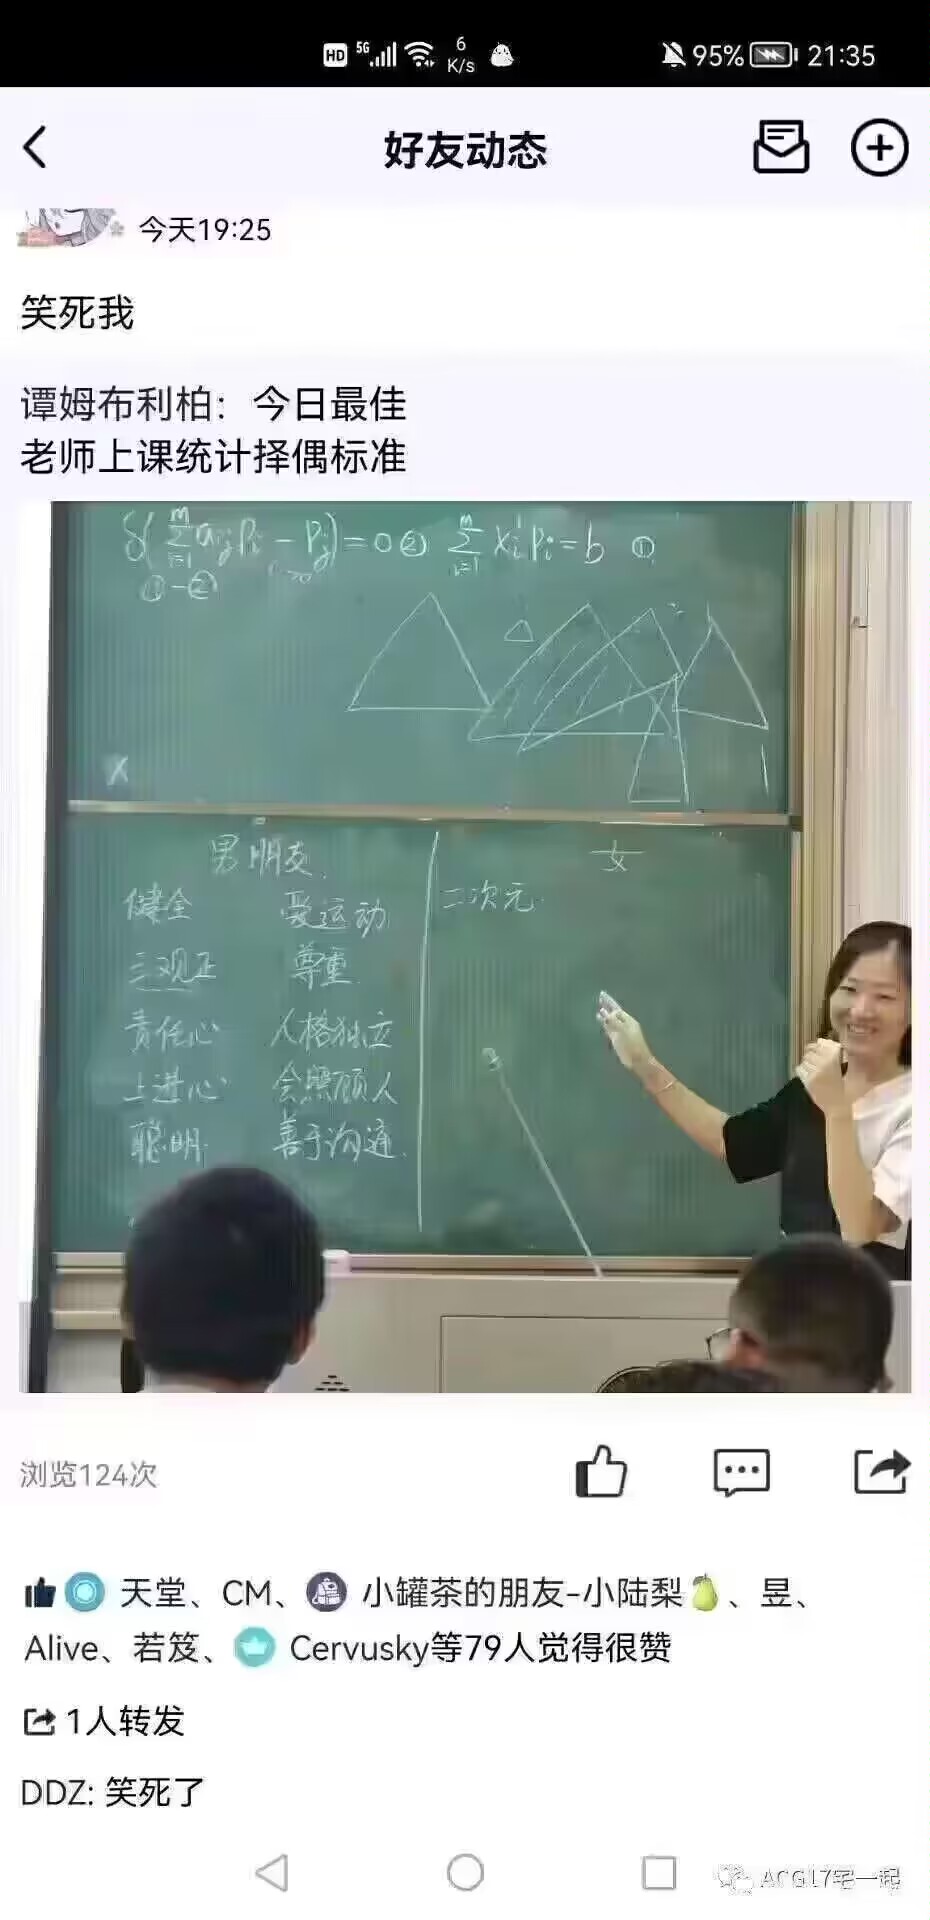 HD 5G 6 K/s 95% 21:35
好友动态
今天19:25
笑死我
谭姆布利柏：今日最佳
老师上课统计择偶标准
δ(∑ᵢ₌₁ᵐ aᵢⱼpᵢ - pⱼ)=0② ∑ᵢ₌₁ᵐ xᵢpᵢ=b ①
①-②
△
x
男朋友 女
健全 爱运动 二次元
三观正 尊重
责任心 人格独立
上进心 会照顾人
聪明 善于沟通
浏览124次
天堂、CM、小罐茶的朋友-小陆梨🍐、昱、
Alive、若笈、Cervusky等79人觉得很赞
1人转发
DDZ: 笑死了
ACG17宅一起